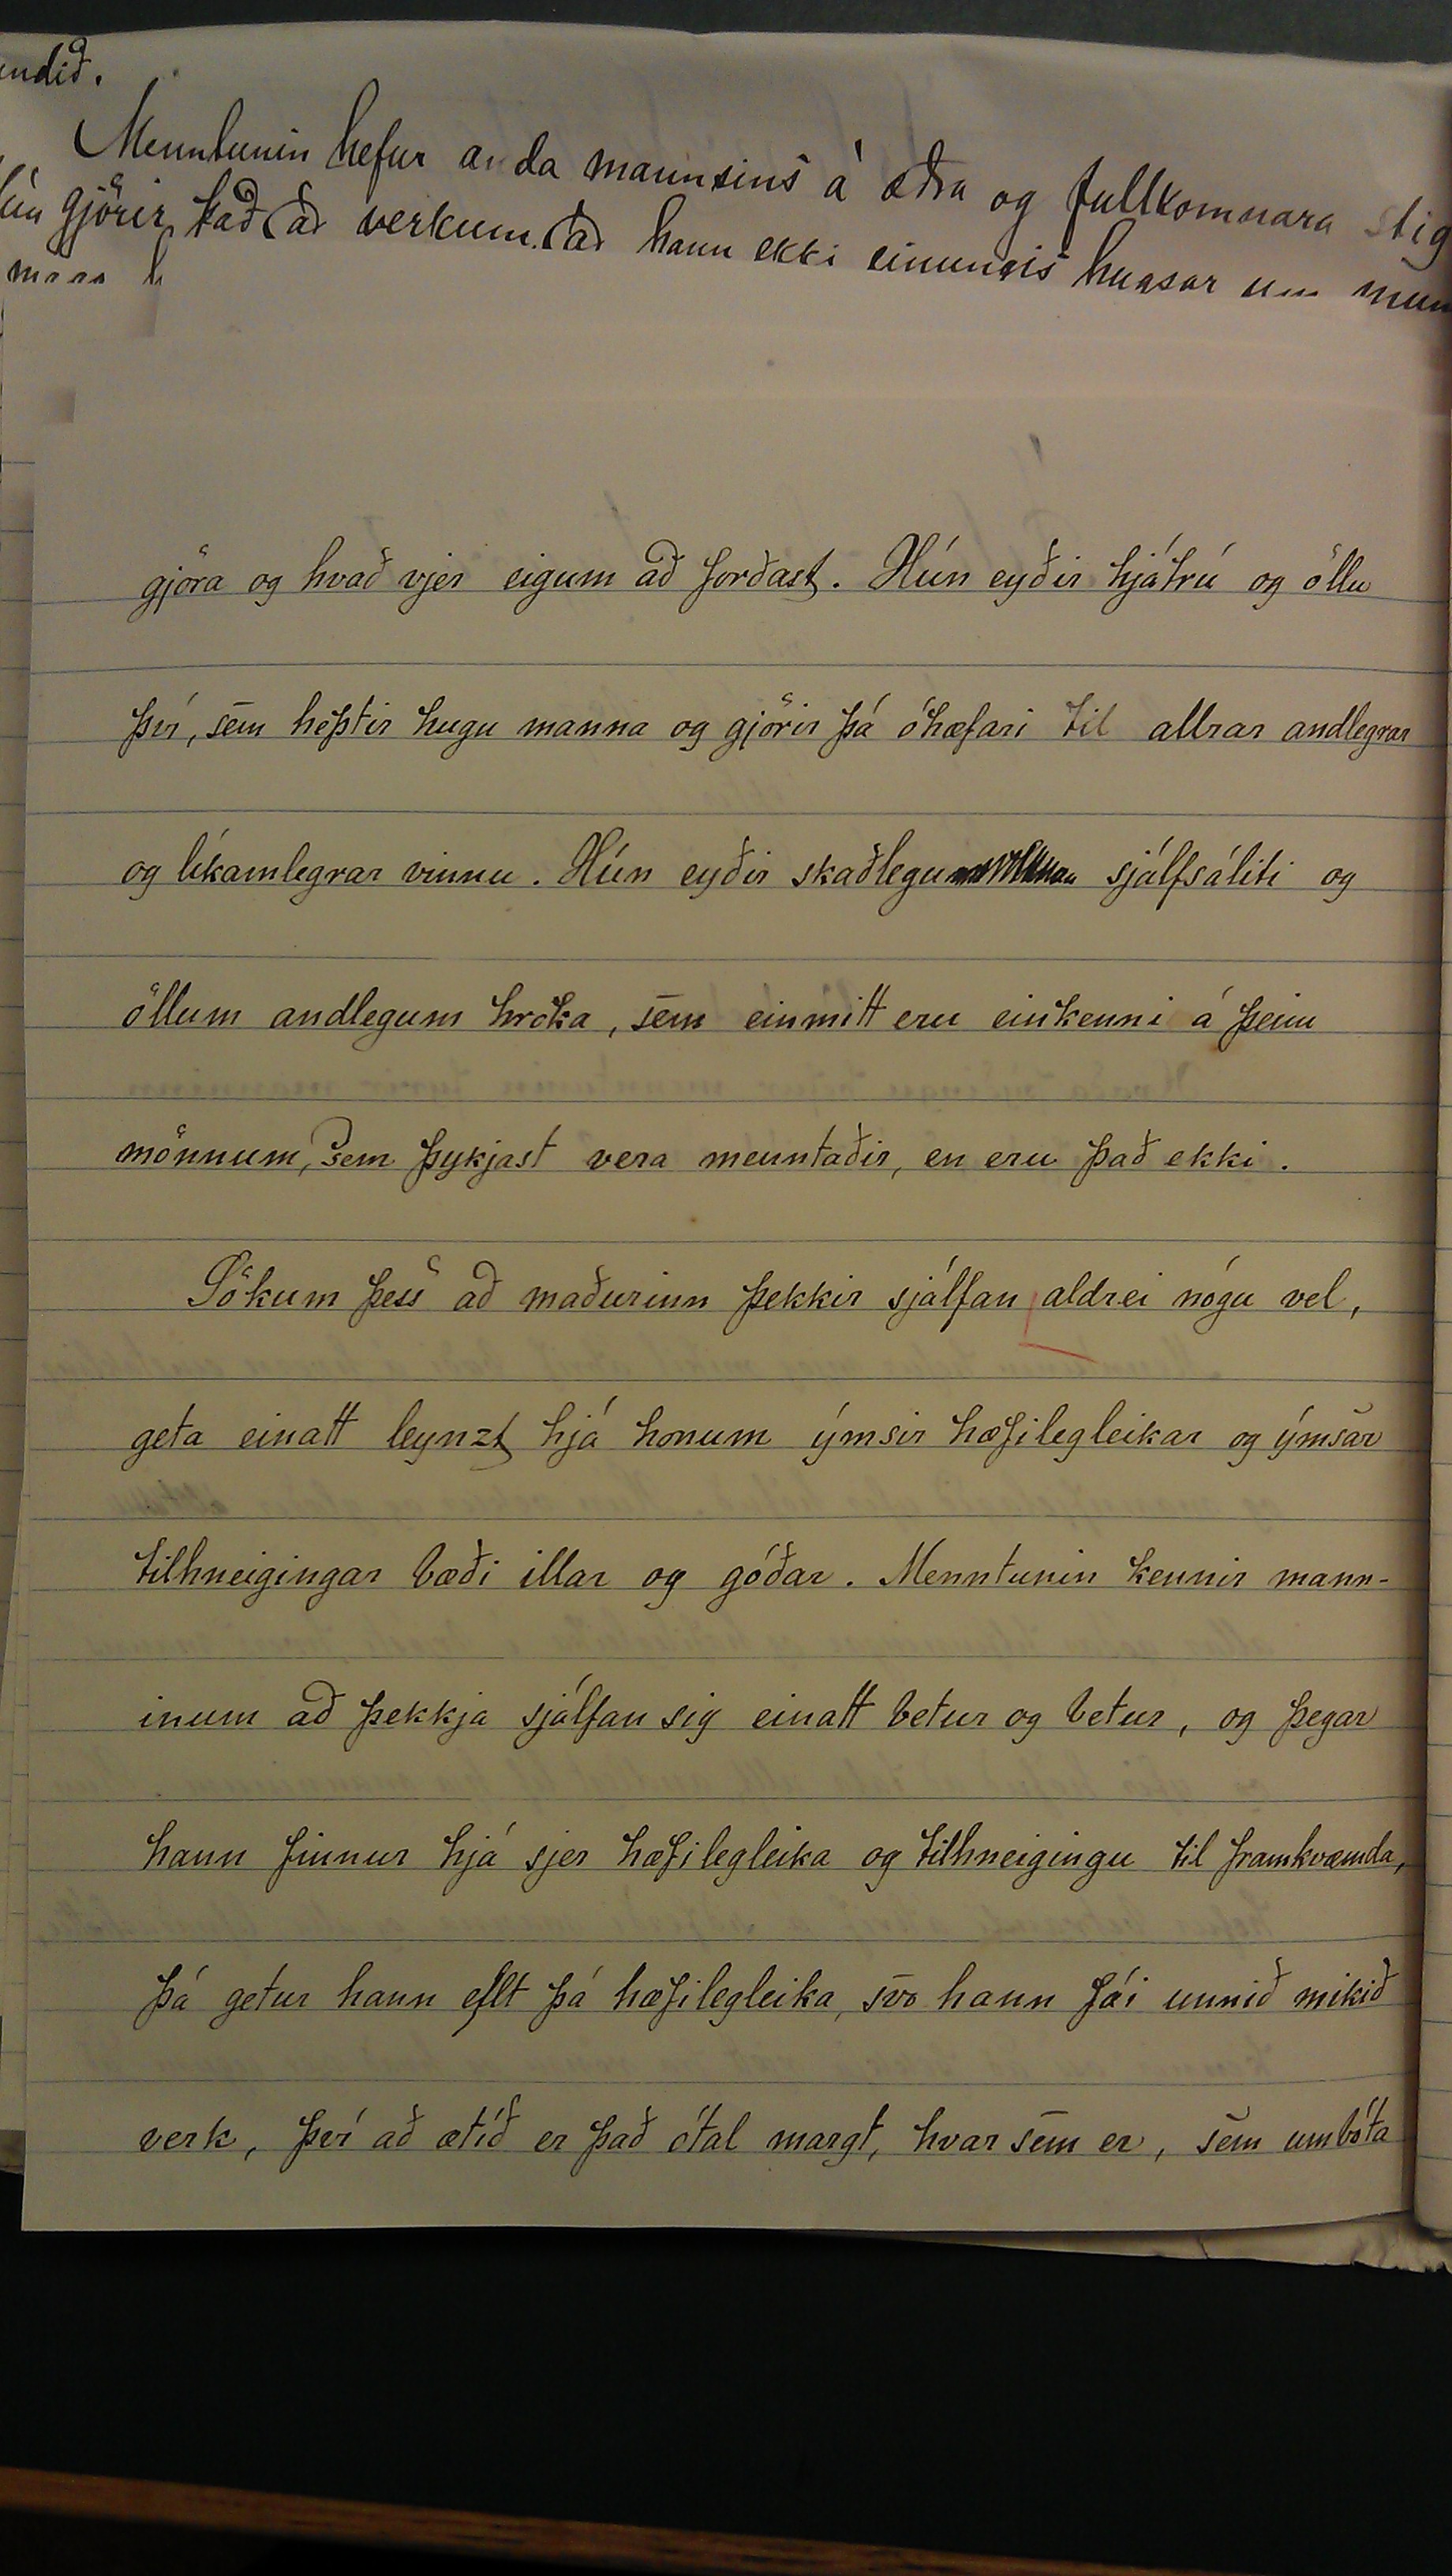 undið.
Menntunin hefur anda mannsins á æðra og fullkomnara stig
gjörir það að verkum að hann ekki einungis hugsar um mun
gjöra og hvað vjer eigum að forðast. Hún eyðir hjátrú og öllu
því, sem heptir hugu manna og gjörir þá óhæfari til allrar andlegrar
og líkamlegrar vinnu. Hún eyðir skaðlegum sjálfsáliti og
öllum andlegum hroka, sem einmitt eru einkenni á þeim
mönnum, sem þykjast vera menntaðir, en eru það ekki.
Sökum þess að maðurinn þekkir sjálfan aldrei nógu vel,
geta einatt leynzt hjá honum ýmsir hæfilegleikar og ýmsar
tilhneigingar bæði illar og góðar. Menntunin kennir mann-
inum að þekkja sjálfan sig einatt betur og betur, og þegar
hann finnur hjá sjer hæfilegleika og tilhneigingu til framkvæmda,
þá getur hann eflt þá hæfilegleika, svo hann fái unnið mikið
verk, því að ætíð er það ótal margt, hvar sem er, sem umbóta